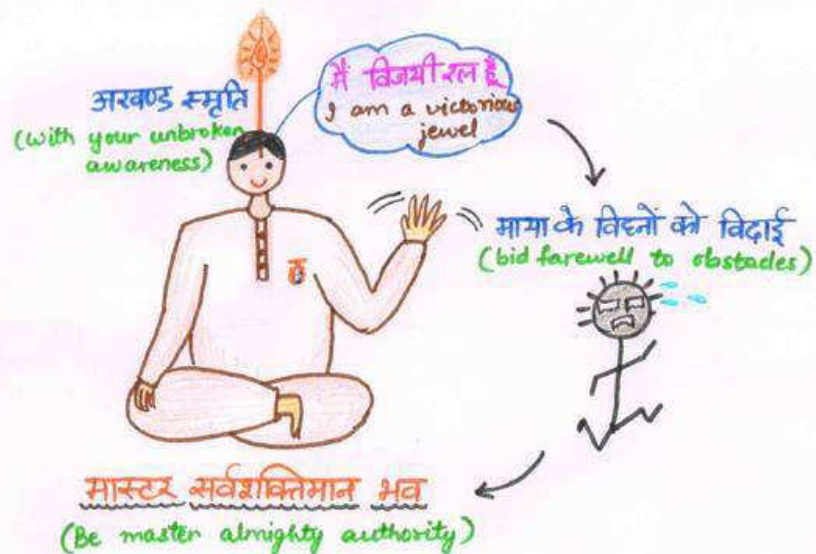 अखण्ड स्मृति
(with your unbroken
awareness)
मैं विजयी रत्न हूँ
I am a victorious
jewel
माया के विघ्नों को विदाई
(bid farewell to obstacles)
मास्टर सर्वशक्तिमान भव
(Be master almighty authority)